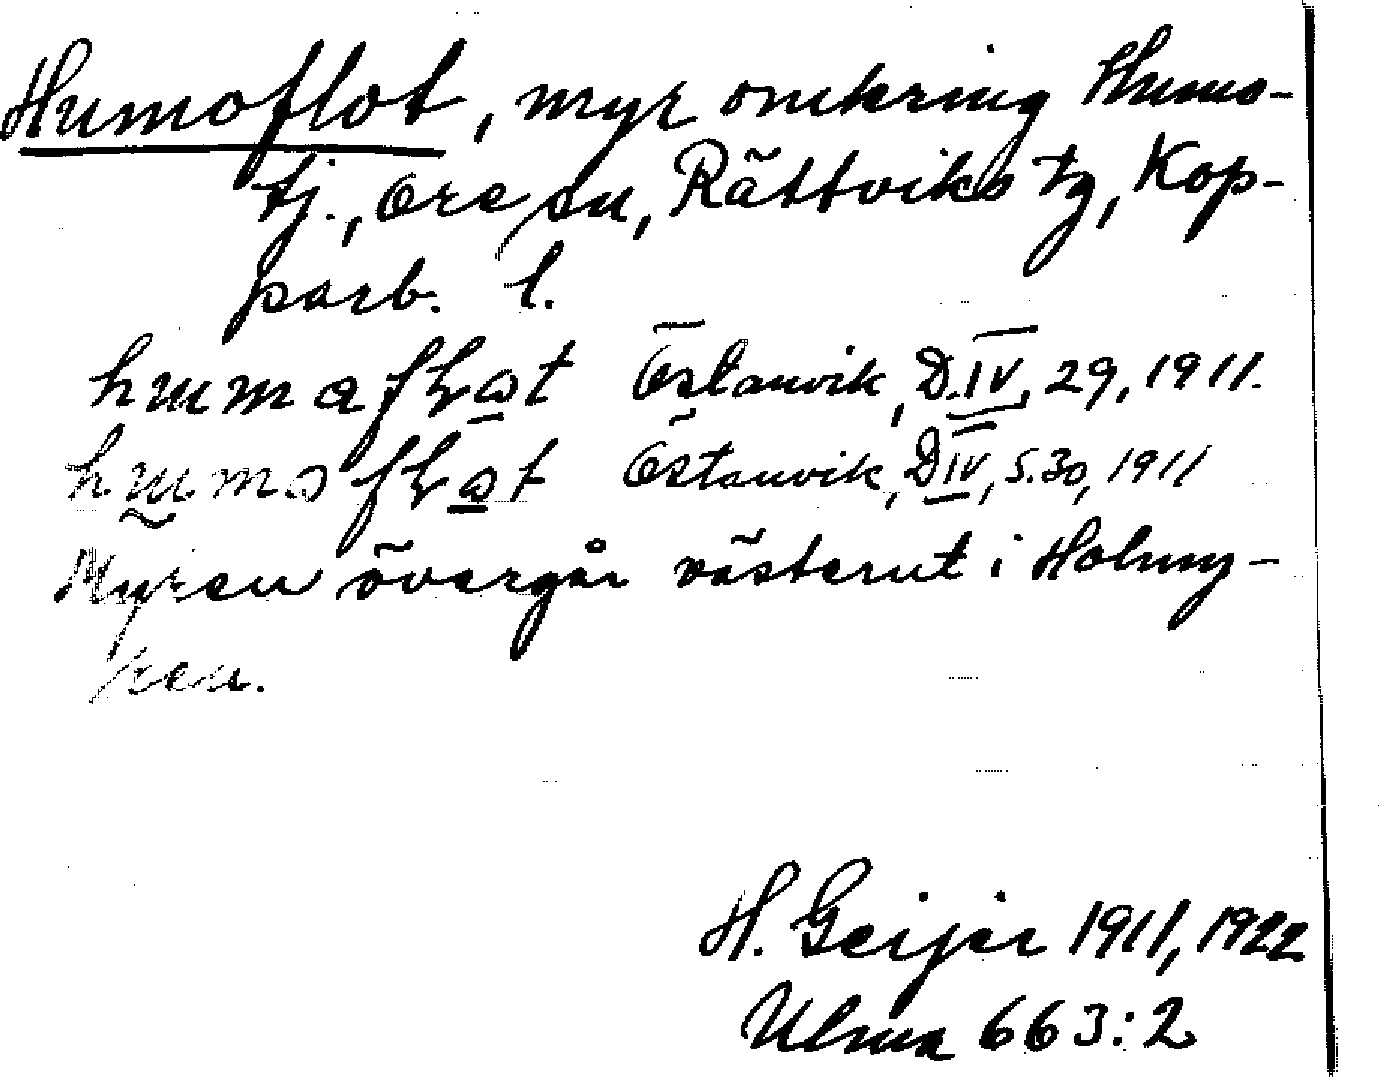 Humoflot, myr omkring Humo-
tj., Ore sn, Rättviks tg, Kop-
parb. l.
Östanvik, D.IV, 29, 1911.
Östanvik, D IV, s. 30, 1911
Myren övergår västerut i Holmy-
ren.
H. Geijer 1911, 1922
Ulma 663:2